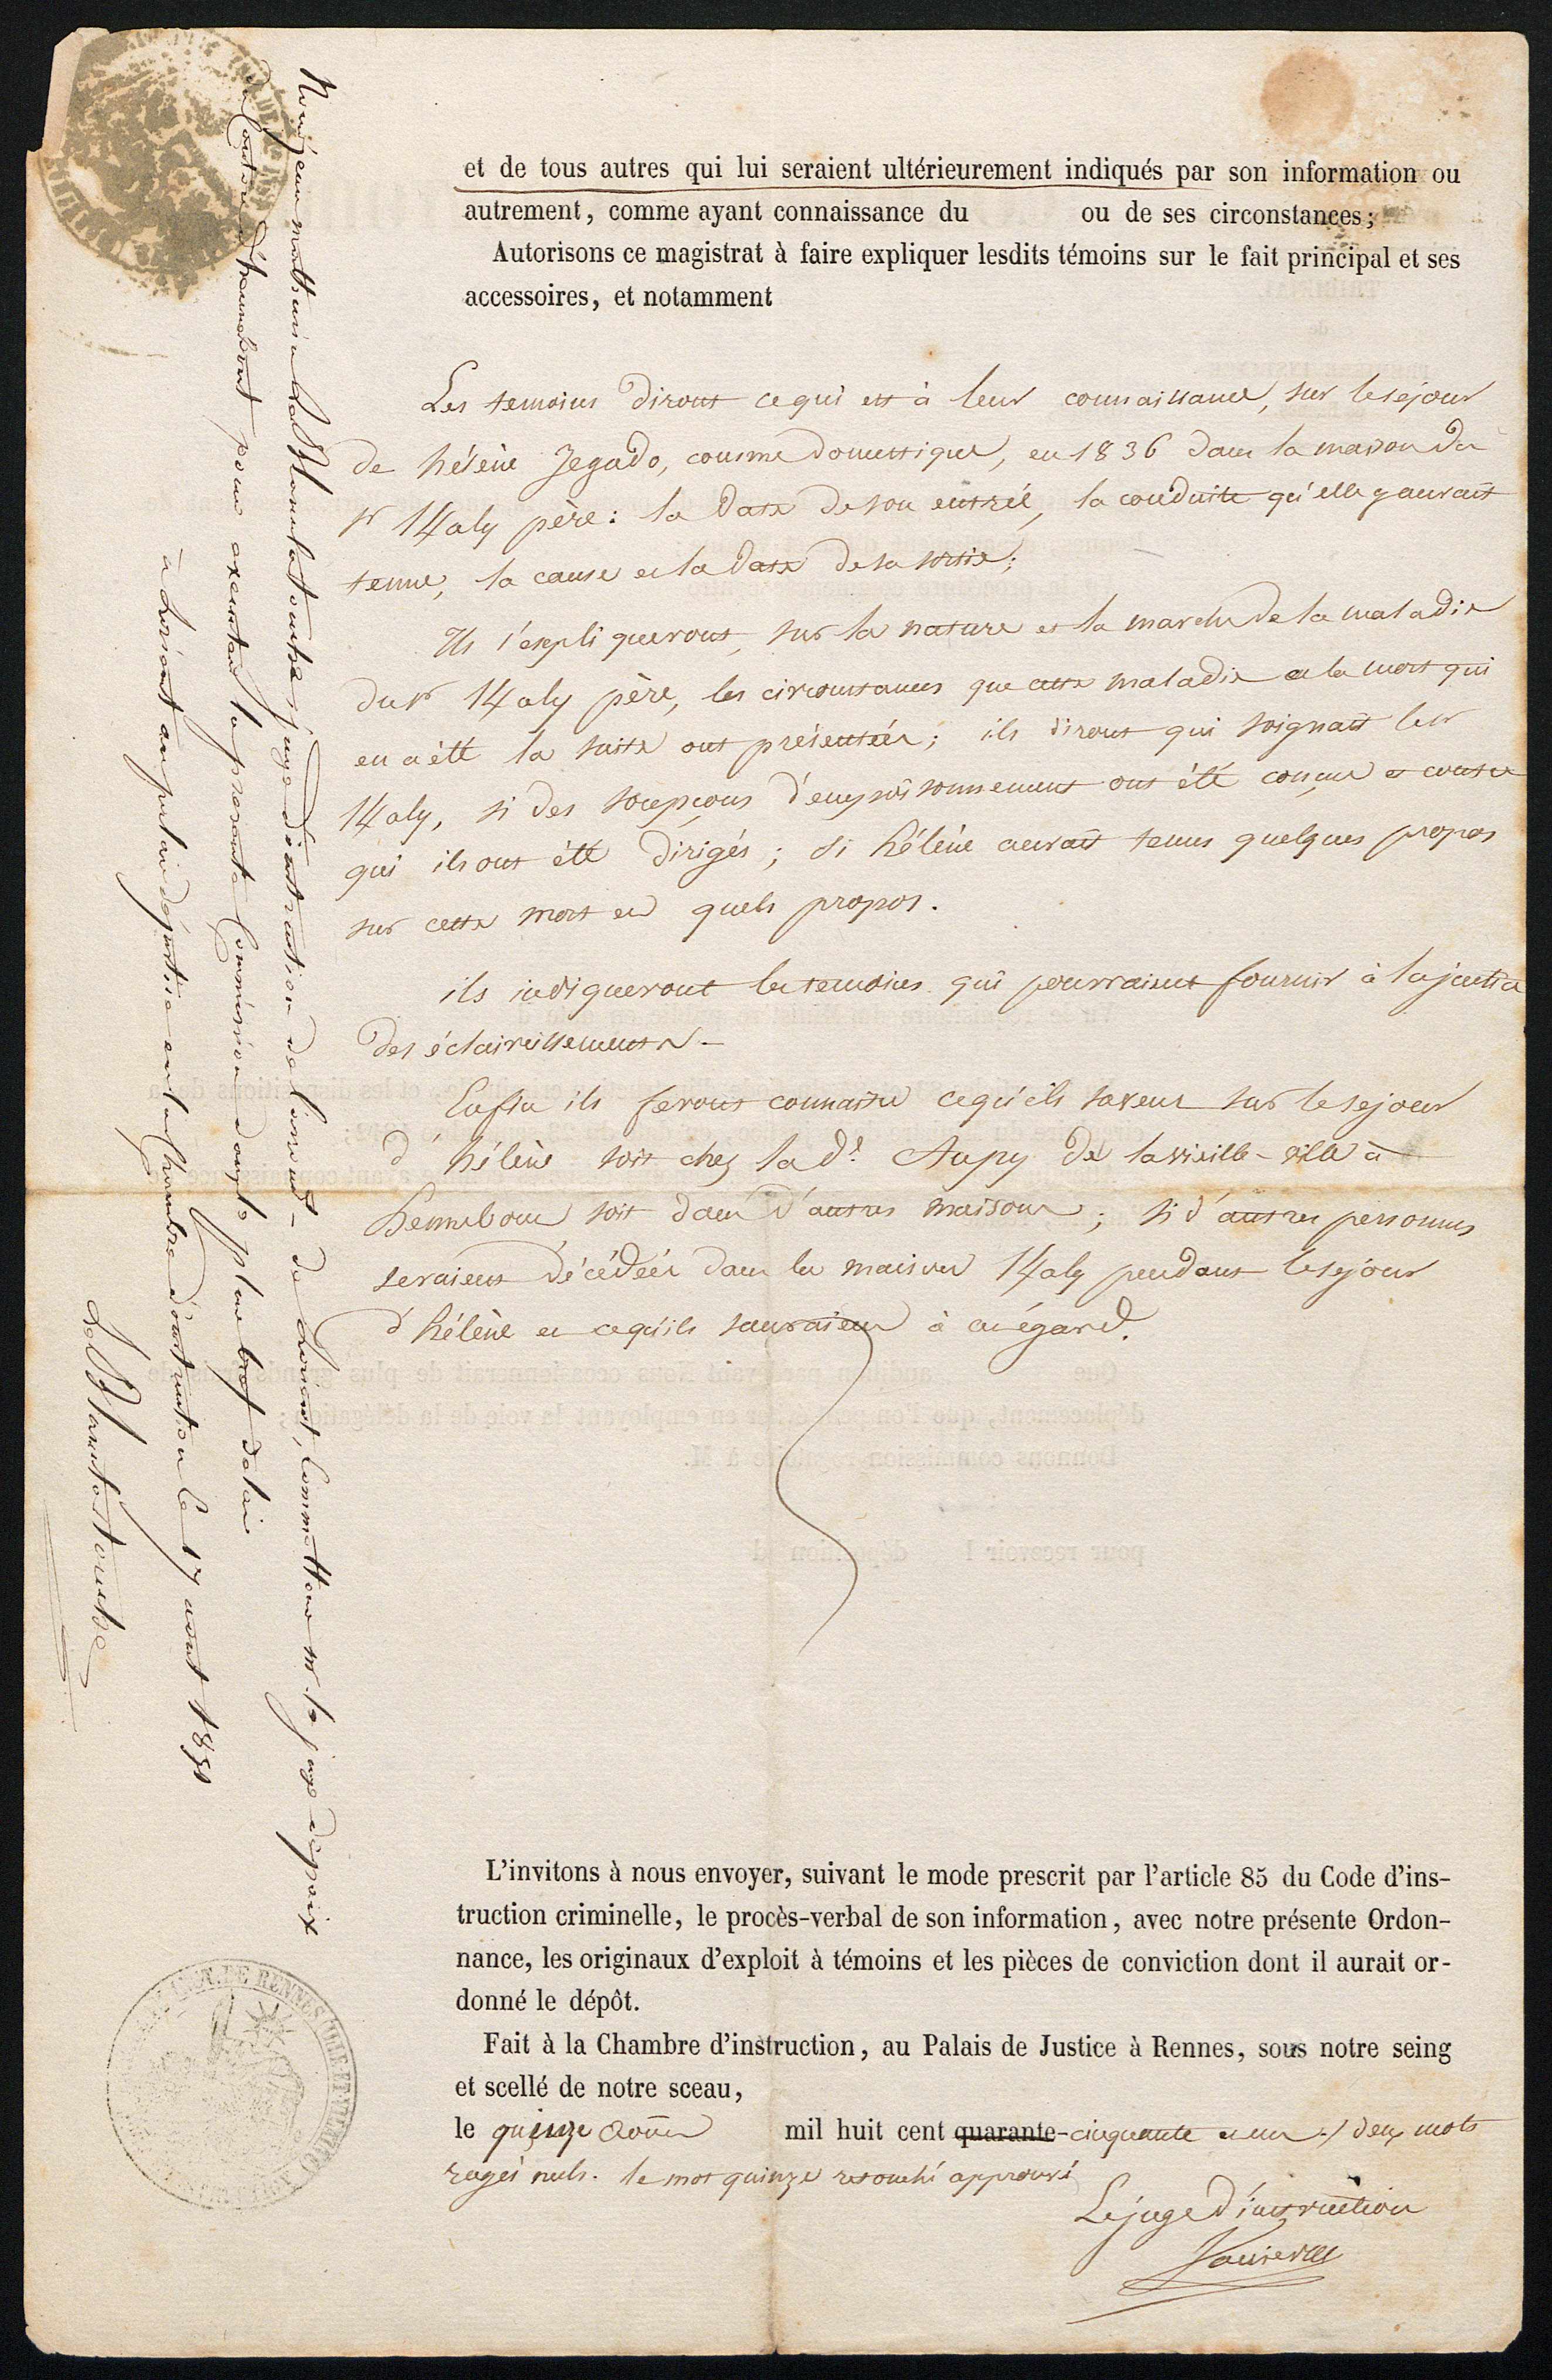 et de tous autres qui lui seraient ultérieurement indiqués par son information ou
autrement, comme ayant connaissance du ou de ses circonstances;
Autorisons ce magistrat à faire expliquer lesdits témoins sur le fait principal et ses
accessoires, et notamment
Les temoins diront ce qui est à leur connaissance, sur le séjour
de hélène Jegado, comme domestique, en 1836 dans la maison du
sr hHaly père: la date de son entrée, la conduite qu'elle y aurait
tenue, la cause et la date de sa sortie;
Ils s'expliqueront, sur la nature et la marche de la maladie
du sr hHaly père, les circonstances que cette maladie et la mort qui
en a été la suite ont présentées; ils diront qui soignait le sr
hHaly, si des soupçons d'empoisonnement ont été conçus et contre
qui ils ont été dirigés; si hélène aurait tenus quelques propos
sur cette mort et quels propos.
ils indiqueront les temoins qui pourraient fournir à la justice
des éclaircissements -
Enfin ils feront connaitre ce qu'ils savent sur le sejour
d'hélène soit chez la de Aupy de la vieille-ville à
hennebont, soit dans d'autres maisons; si d'autres personnes
seraient décédées dans la maison hHaly pendant le séjour
d'hélène et ce qu'ils sauraient à cet égard.
L'invitons à nous envoyer, suivant le mode prescrit par l'article 85 du Code d'ins-
truction criminelle, le procès-verbal de son information, avec notre présente Ordon-
nance, les originaux d'exploit à témoins et les pièces de conviction dont il aurait or-
donné le dépôt.
Fait à la Chambre d'instruction, au Palais de Justice à Rennes, sous notre seing
et scellé de notre sceau,
le quinze août mil huit cent quarante-cinquante et un ./. deux mots
rayés nuls. le mot quinze retouché approuvé
Le juge d'instruction
Nous jean mathurin Le Blanc juge d'instruction de Lorient, commettons mr le juge de paix
du Canton d'hennebont pour executer la presente Commission dans le plus bref delai
à Lorient au palais de justice en la chambre d'instruction le 17 aout 1851
DE RENNES